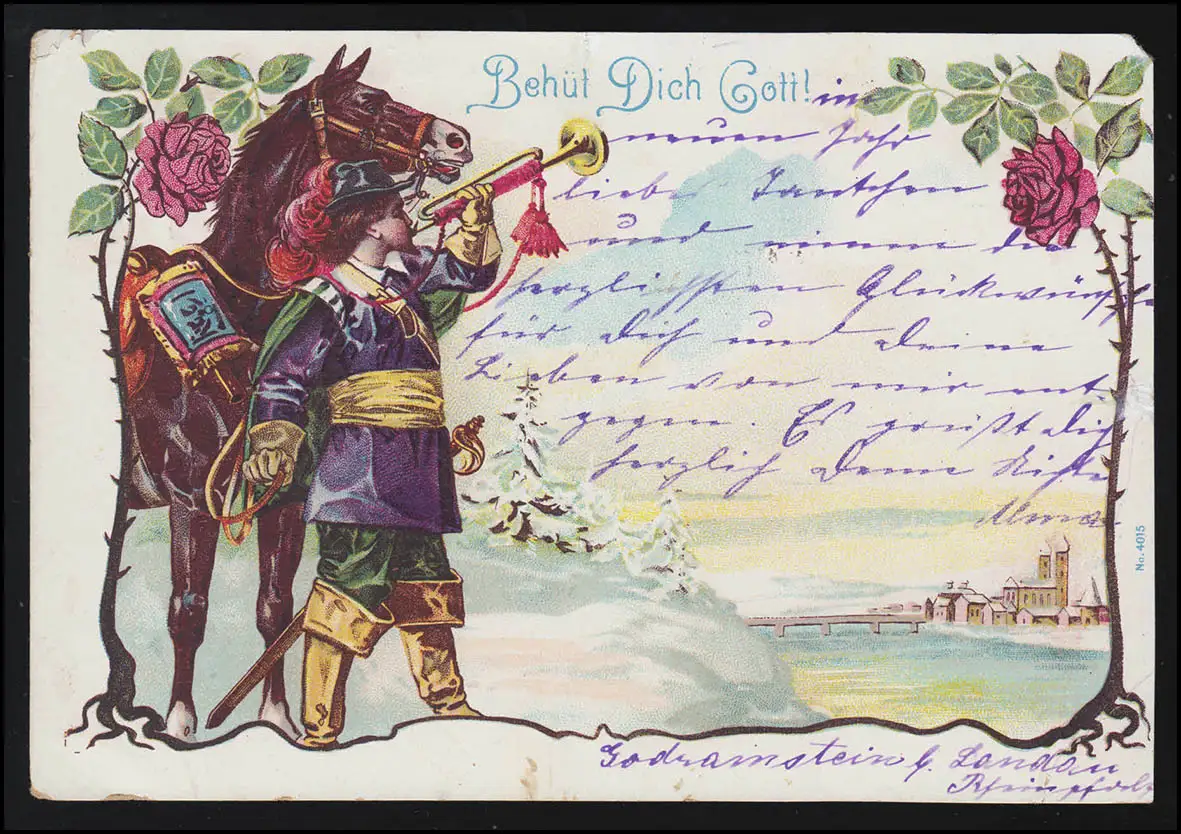 Behüt Dich Gott! im
neuen Jahr
liebes Tantchen
und nimm die
herzlichsten Glückwünsche
für Dich und Deine
Lieben von mir ent-
gegen. Es grüßt Dich
herzlich Deine Nichte
Alma
No. 4015
Godramstein b. Landau
Rheinpfalz